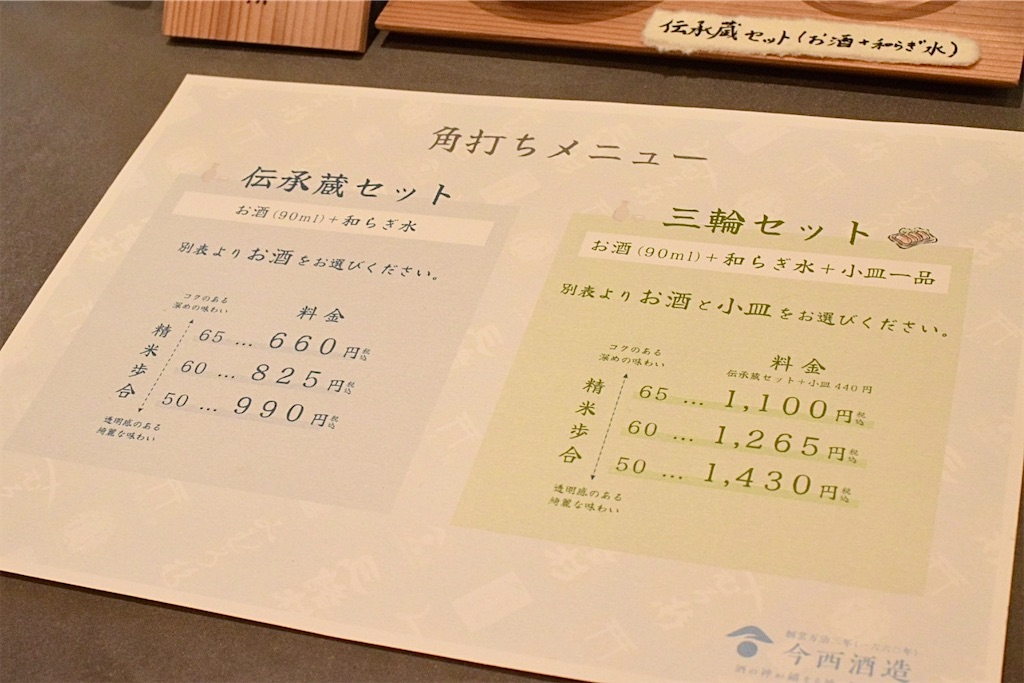 伝承蔵セット(お酒+和らぎ水)
角打ちメニュー
伝承蔵セット
お酒(90ml)+和らぎ水
別表よりお酒をお選びください。
コクのある
深めの味わい
精米歩合
透明感のある
綺麗な味わい
料金
65 … 660円税込
60 … 825円税込
50 … 990円税込
三輪セット
お酒(90ml)+和らぎ水+小皿一品
別表よりお酒と小皿をお選びください。
コクのある
深めの味わい
精米歩合
透明感のある
綺麗な味わい
料金
伝承蔵セット+小皿440円
65 … 1,100円税込
60 … 1,265円税込
50 … 1,430円税込
創業万治三年(一六六〇年)
今西酒造
酒の神が鎮まる地